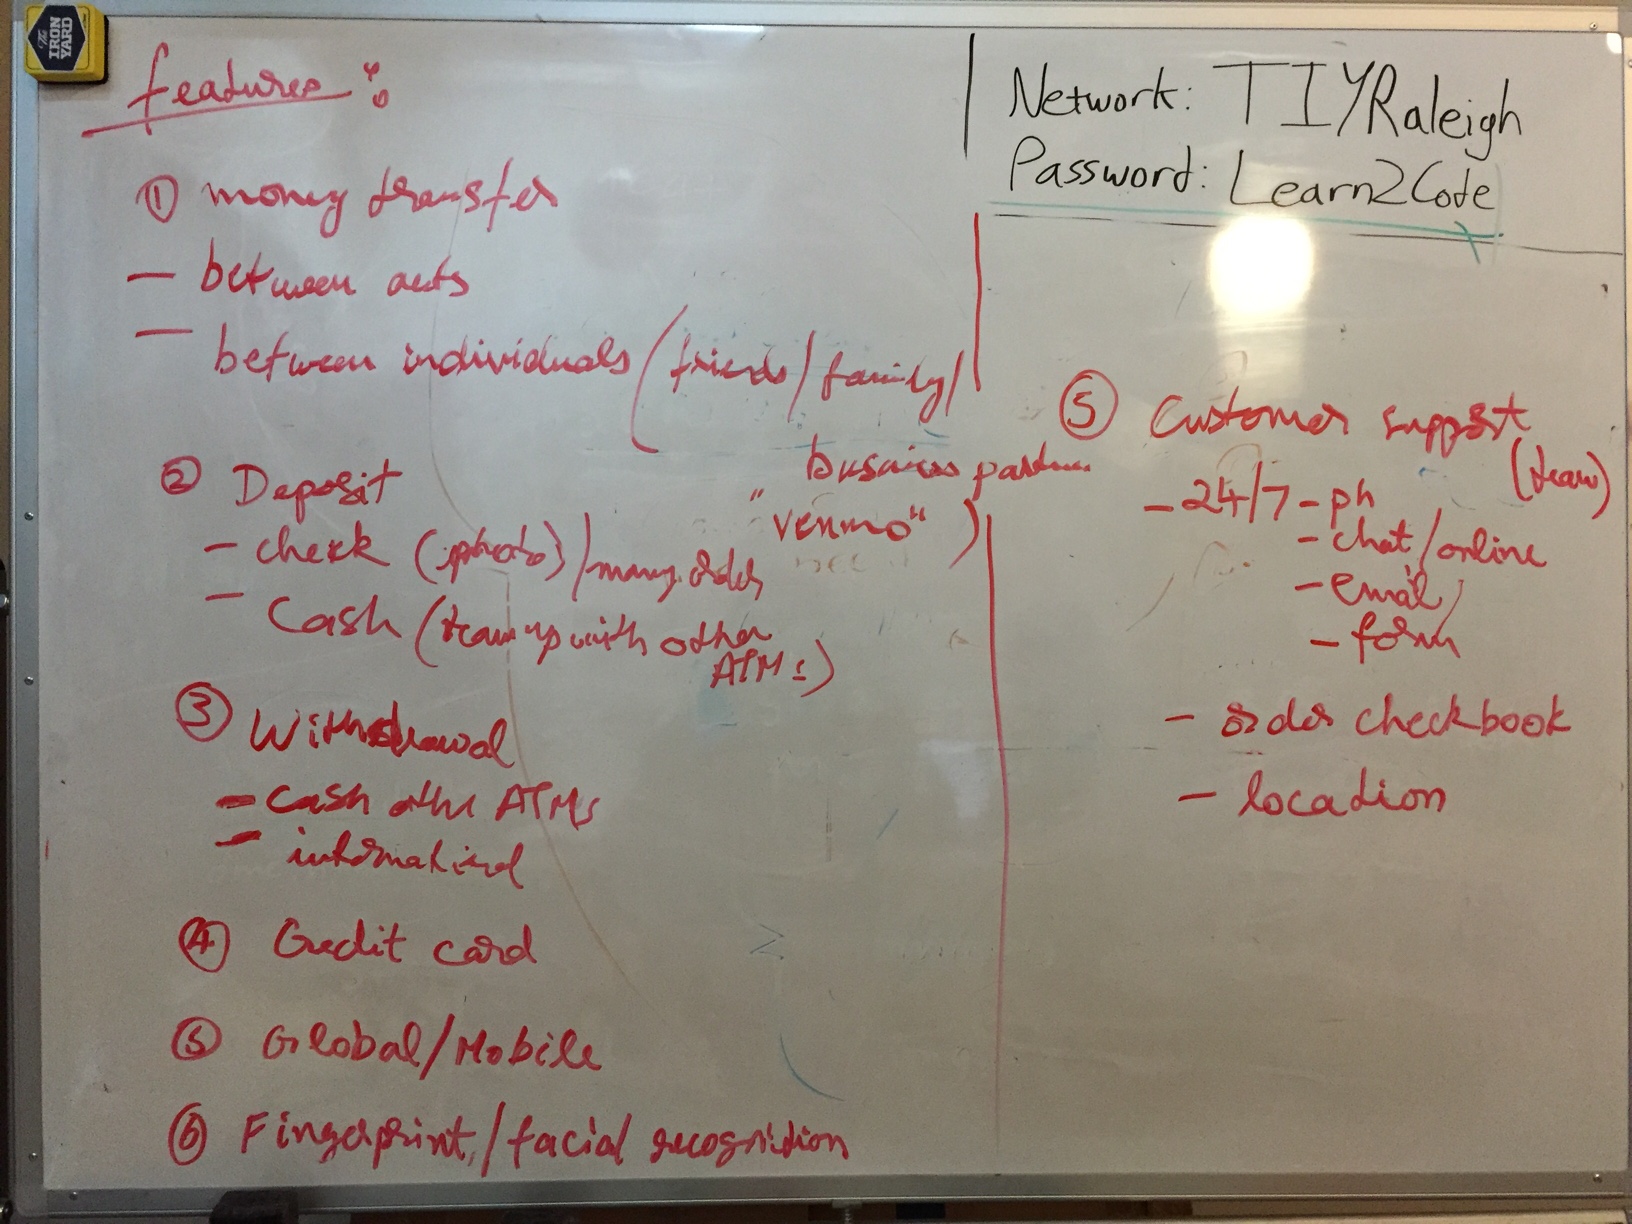 The
IRON
YARD
features :
① money transfer
— between acts
— between individuals (friends/family/
business partner
"venmo")
② Deposit
- check (photo)/money order
- Cash (team up with other
ATMs)
③ Withdrawal
- cash other ATMs
- international
④ Credit card
⑤ Global/Mobile
⑥ Fingerprint/facial recognition
Network: TIYRaleigh
Password: Learn2Code
⑤ Customer support
(team)
- 24/7 - ph
- chat/online
- email/
- form
- order checkbook
- location